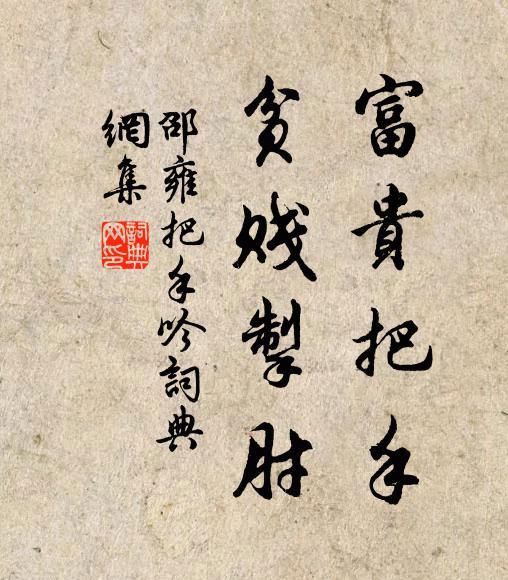 富貴把手
貧賤掣肘
邵雍把手吟詞典
網集
詞典
网印